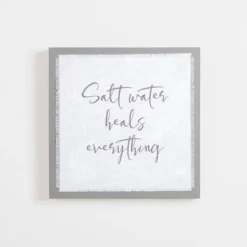 Salt water
heals
everything